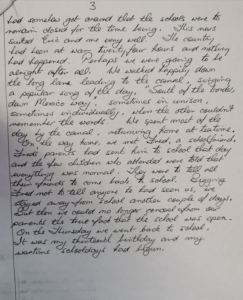 3
had somehow got around that the schools were to
remain closed for the time being. This news
suited Eric and me very well. The country
had been at war twenty-four hours and nothing
had happened. Perhaps we were going to be
alright after all. We walked happily down
the long lane leading to the canal, singing
a popular song of the day, "South of the border,
down Mexico way", sometimes in unison,
sometimes individually, when the other couldn't
remember the words. We spent most of the
day by the canal, returning home at teatime.
On the way home, we met Fred, a schoolfriend.
Fred's parents had sent him to school that day
and the few children who attended were told that
everything was normal. They were to tell all
their friends to come back to school. Begging
Fred not to tell anyone he had seen us, we
stayed away from school another couple of days.
But then we could no longer conceal from our
parents the true fact that the school was open.
On the Thursday we went back to school.
It was my thirteenth birthday and my
wartime schooldays had begun.